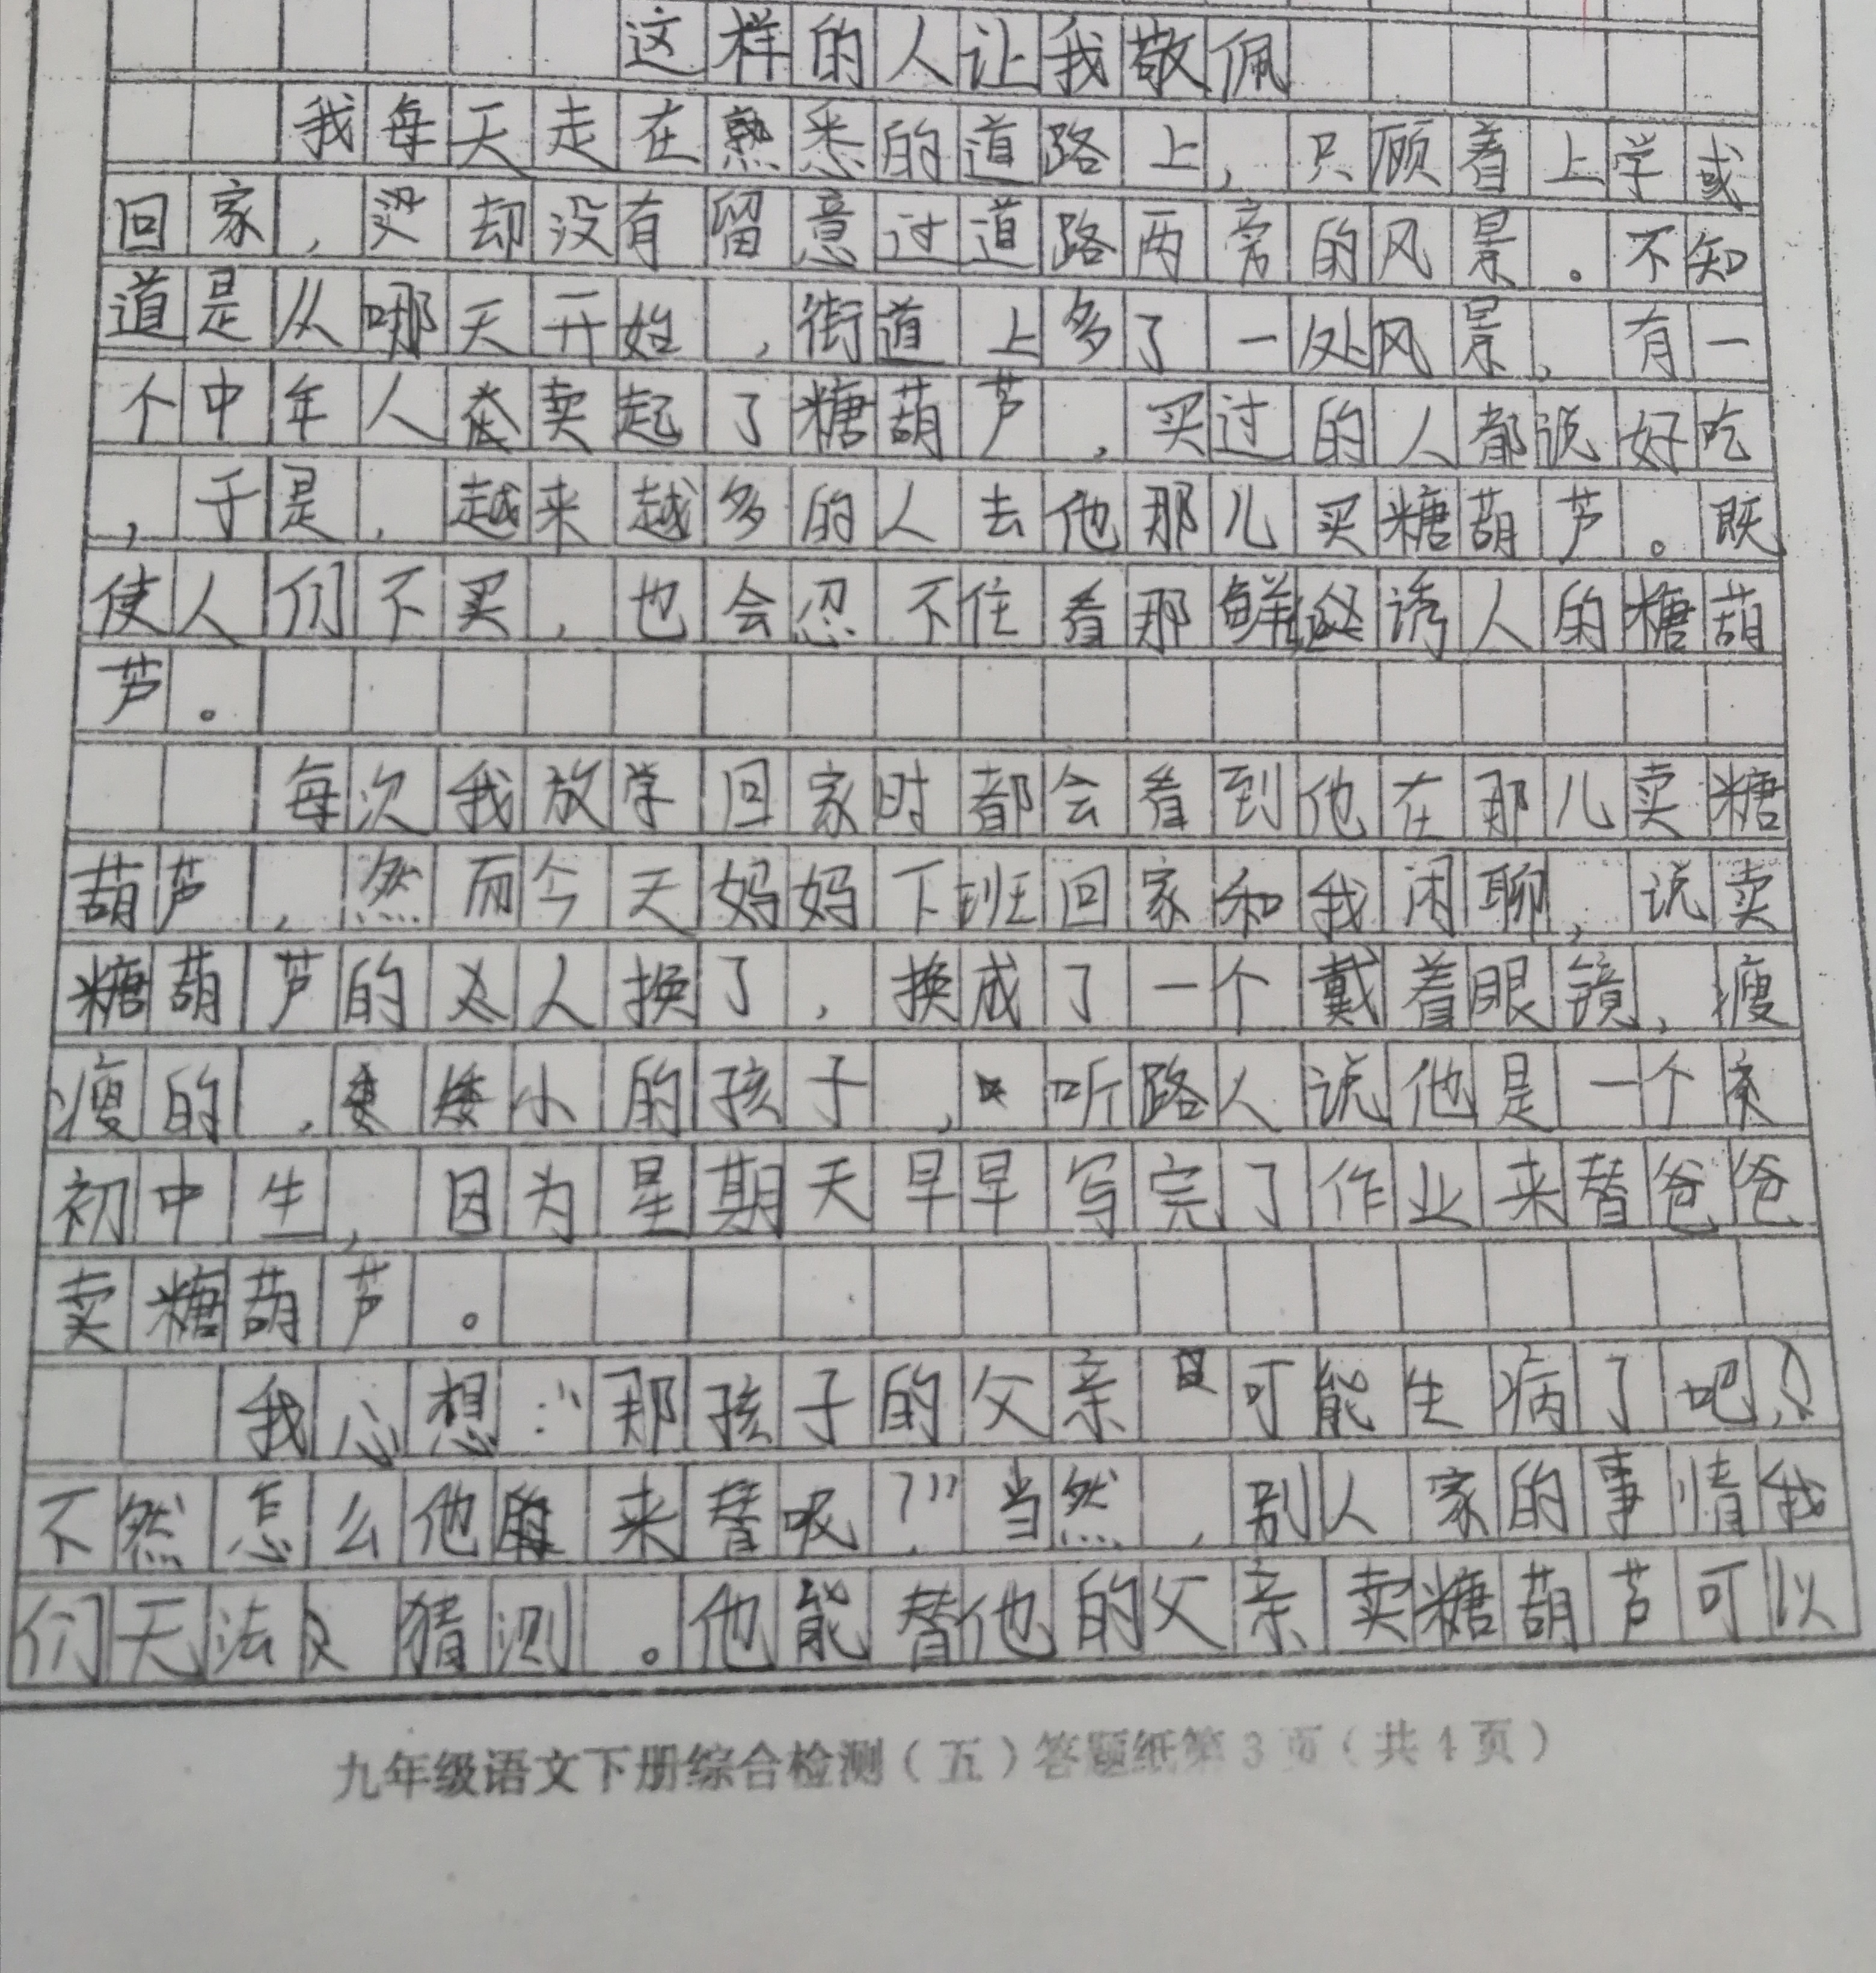 这样的人让我敬佩
我每天走在熟悉的道路上，只顾着上学或
回家，却没有留意过道路两旁的风景。不知
道是从哪天开始，街道上多了一处风景，有一
个中年人卖起了糖葫芦，买过的人都说好吃
，于是，越来越多的人去他那儿买糖葫芦。既
使人们不买，也会忍不住看那鲜诱人的糖葫
芦。
每次我放学回家时都会看到他在那儿卖糖
葫芦，然而今天妈妈下班回家和我闲聊，说卖
糖葫芦的人换了，换成了一个戴着眼镜，瘦
瘦的，矮小的孩子，听路人说他是一个
初中生，因为星期天早早写完了作业来替爸爸
卖糖葫芦。
我心想：“那孩子的父亲可能生病了吧，
不然怎么他来替呢？”当然，别人家的事情我
们无法猜测。他能替他的父亲卖糖葫芦可以
九年级语文下册综合检测（五）答题纸第3页（共4页）